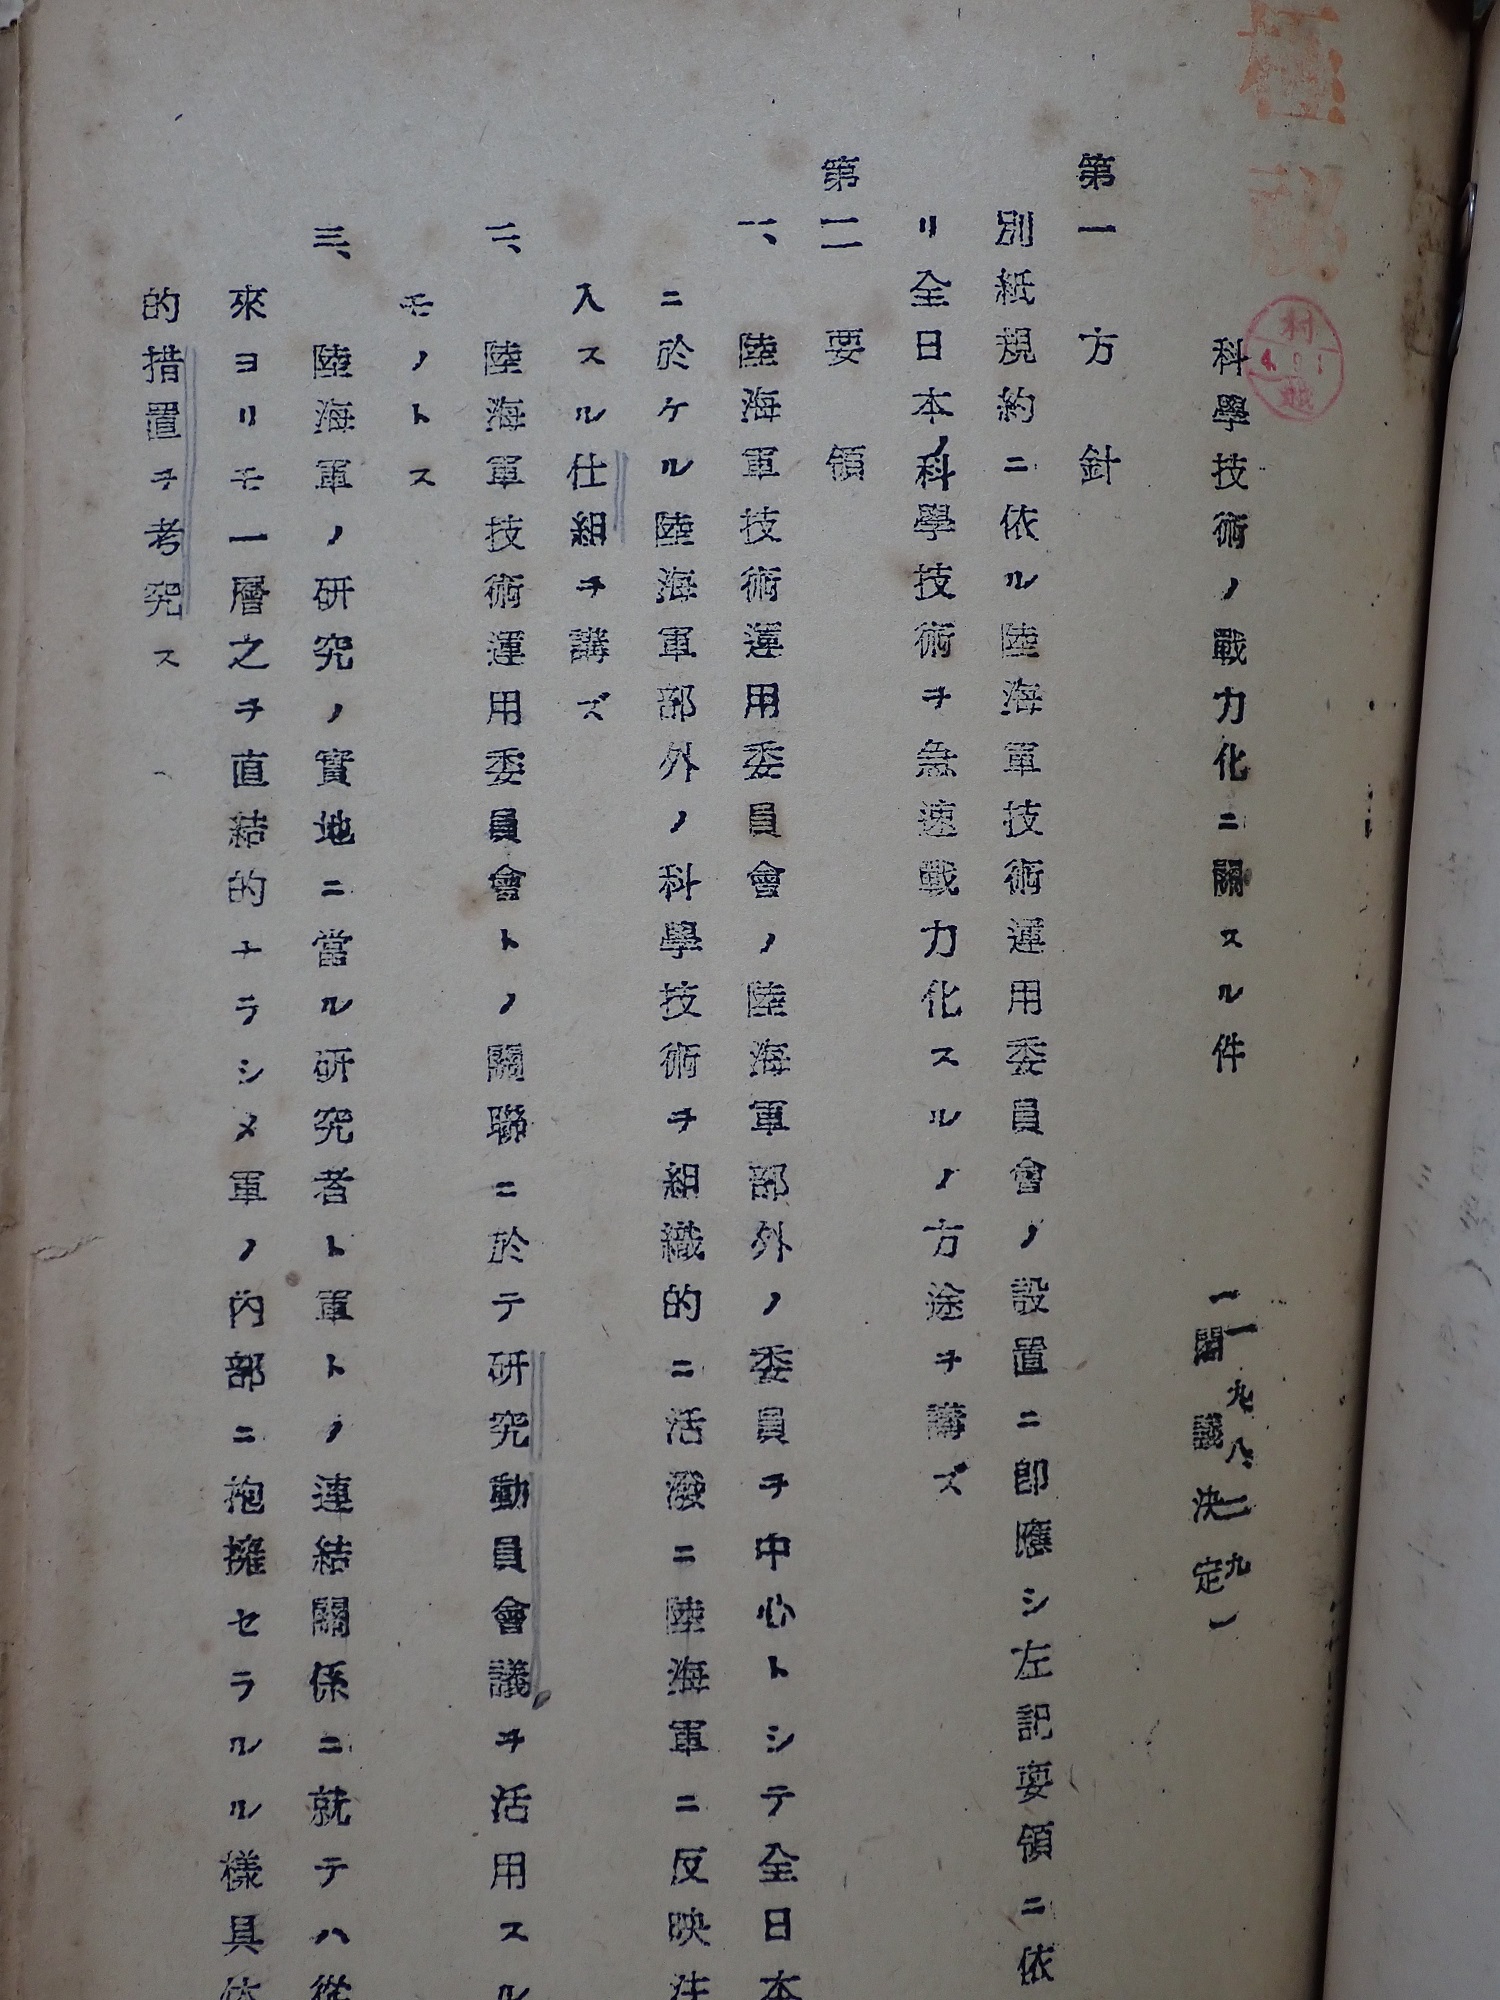 極秘
村
4.9.1
科學技術ノ戰力化ニ關スル件
(一九、八、二九
閣議決定)
第一 方針
別紙規約ニ依ル陸海軍技術運用委員會ノ設置ニ即應シ左記要領ニ依
リ全日本ノ科學技術ヲ急速戰力化スルノ方途ヲ講ズ
第二 要領
一、陸海軍技術運用委員會ノ陸海軍部外ノ委員ヲ中心トシテ全日本
ニ於ケル陸海軍部外ノ科學技術ヲ組織的ニ活潑ニ陸海軍ニ反映注
入スル仕組ヲ講ズ
二、陸海軍技術運用委員會トノ關聯ニ於テ研究動員會議ヲ活用スル
モノトス
三、陸海軍ノ研究ノ實地ニ當ル研究者ト軍トノ連結關係ニ就テハ從
來ヨリモ一層之ヲ直結的ナラシメ軍ノ內部ニ抱擁セラルル樣具体
的措置ヲ考究ス